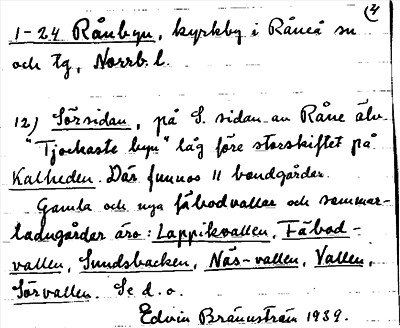 4
1-24 Rånbyn, kyrkby i Råneå sn
och tg, Norrb. l.
12) Sörsidan, på S. sidan av Råne älv.
"Tjockaste byn" låg före storskiftet på
Kalheden. Där funnos 11 bondgårdar.
Gamla och nya fäbodvallar och sommar-
ladugårdar äro: Lappikvallen, Fäbod-
vallen, Sundsbacken, Näs-vallen, Vallen,
Sörvallen. Se d. o.
Edvin Brännström 1939.